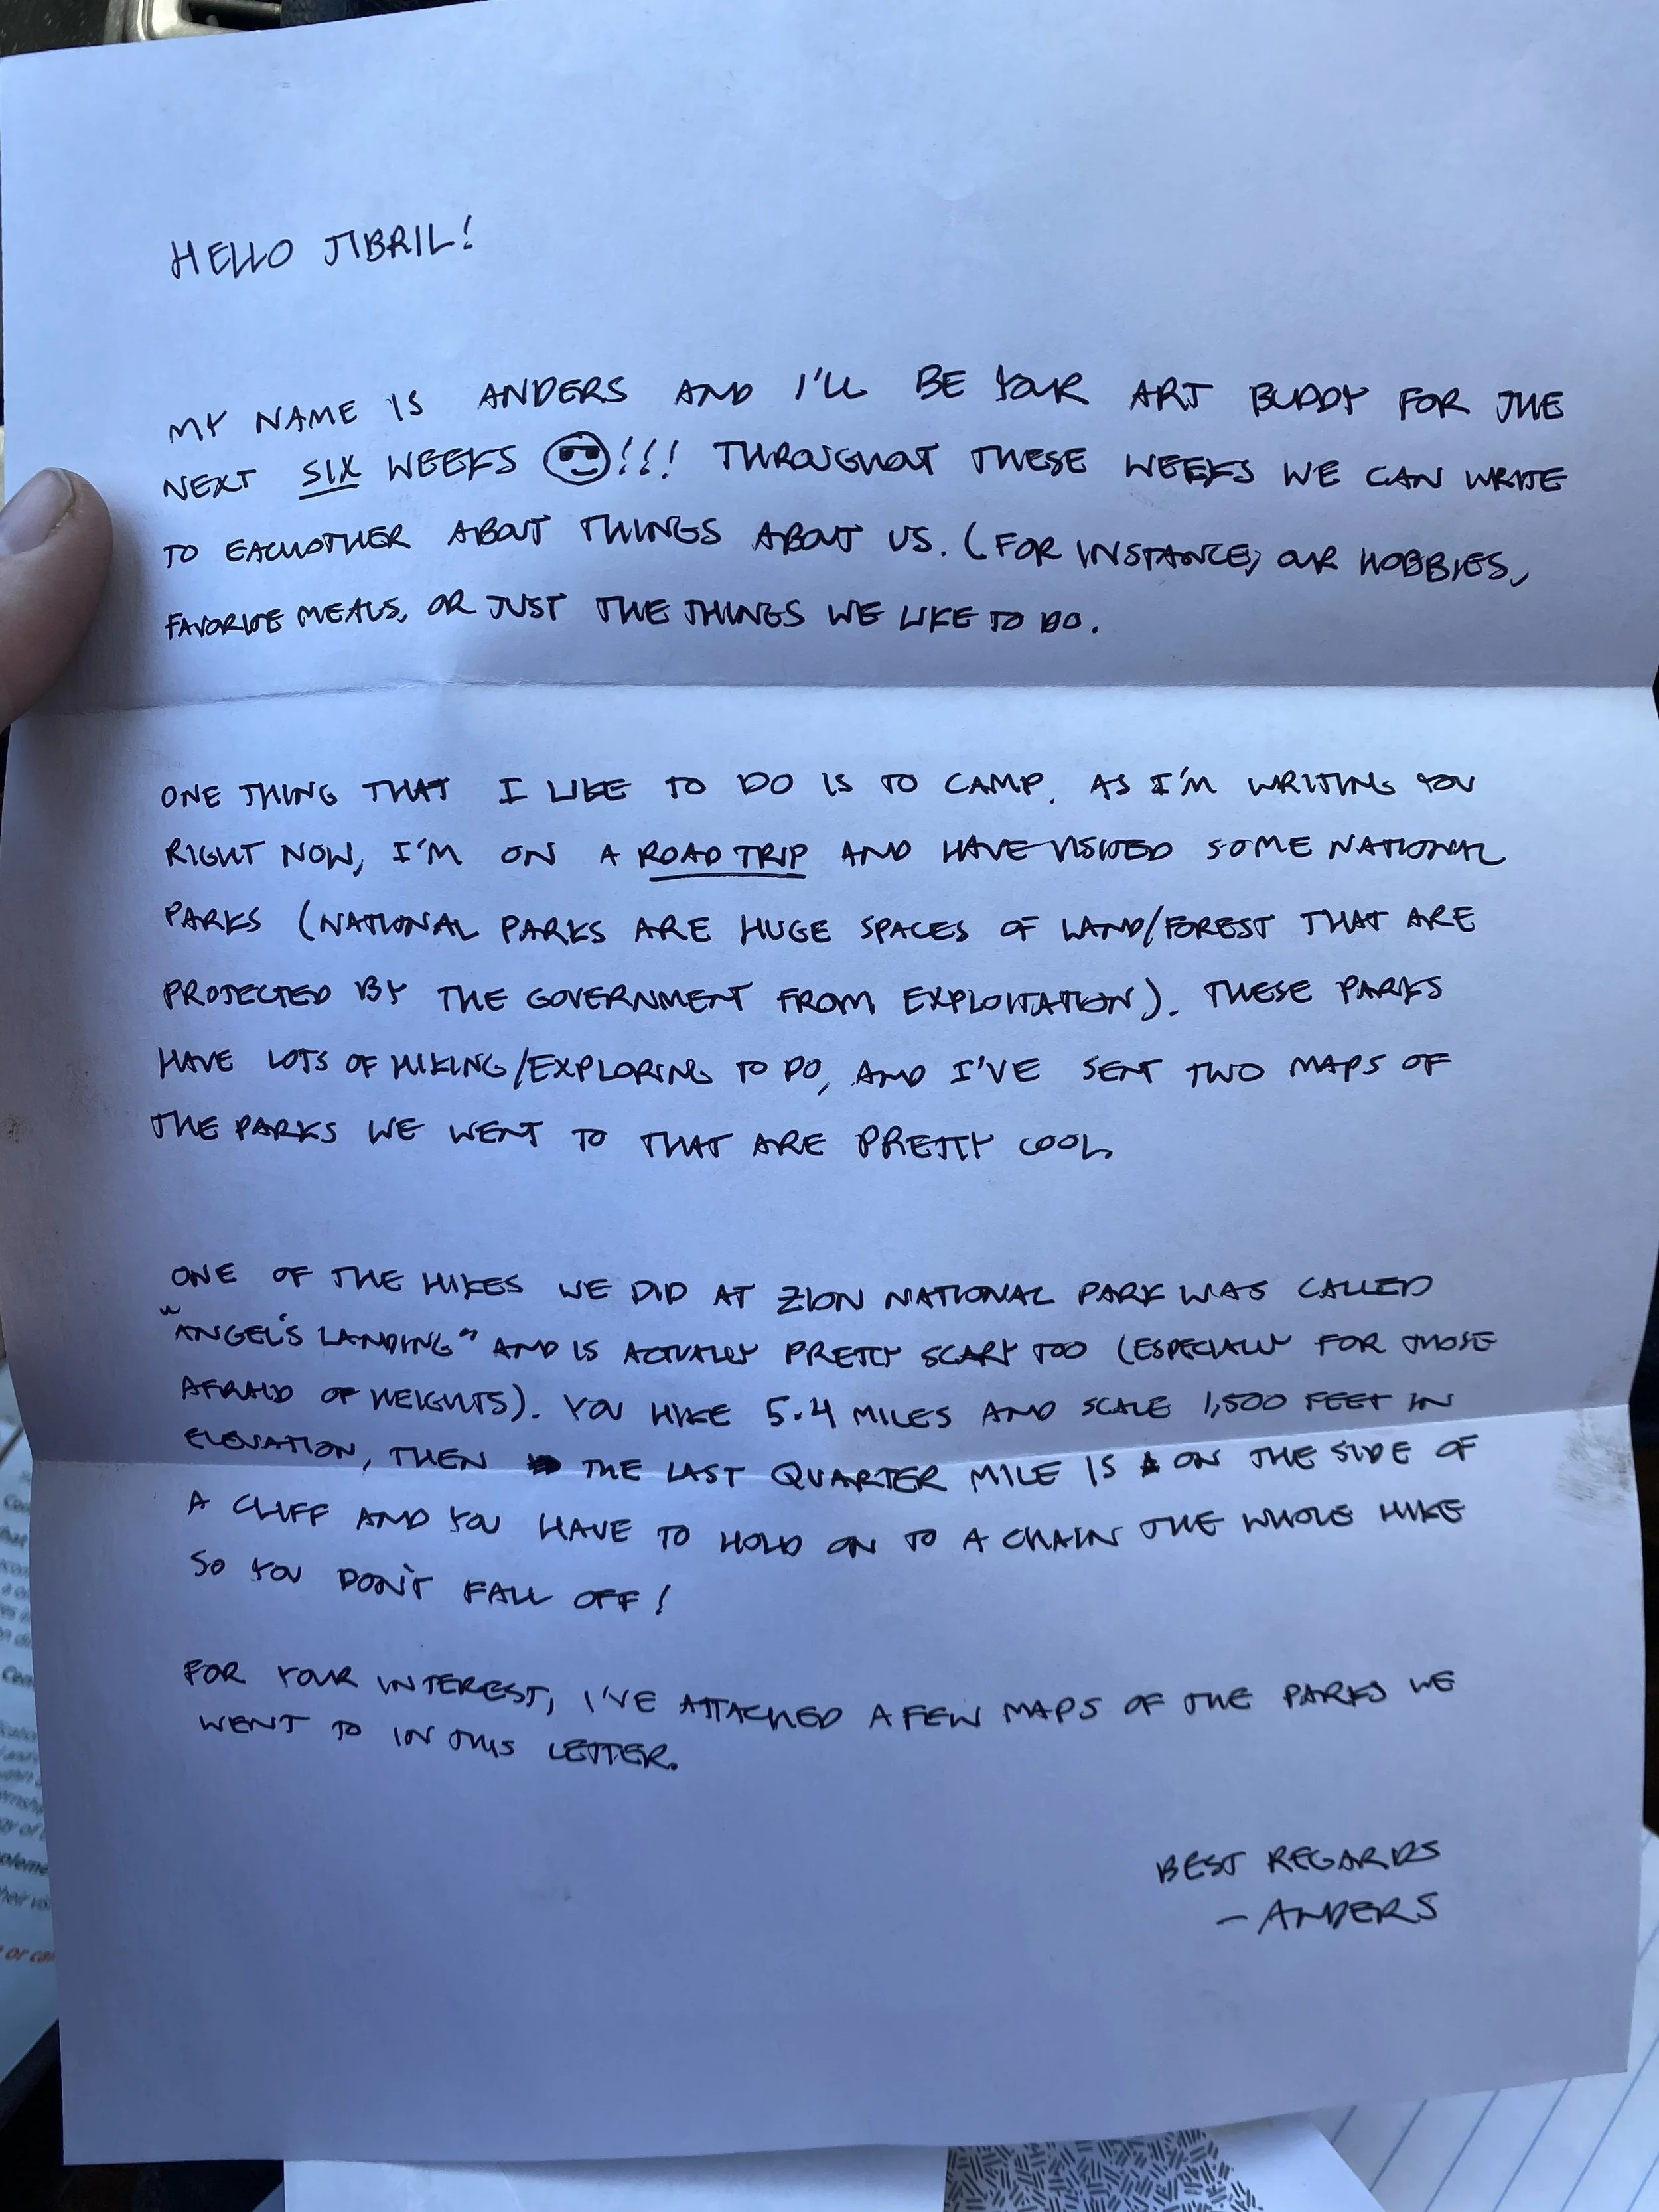 HELLO JIBRIL!
MY NAME IS ANDERS AND I'LL BE YOUR ART BUDDY FOR THE
NEXT SIX WEEKS 😎!!! THROUGHOUT THESE WEEKS WE CAN WRITE
TO EACHOTHER ABOUT THINGS ABOUT US. (FOR INSTANCE, OUR HOBBIES,
FAVORITE MEALS, OR JUST THE THINGS WE LIKE TO DO.
ONE THING THAT I LIKE TO DO IS TO CAMP. AS I'M WRITING YOU
RIGHT NOW, I'M ON A ROAD TRIP AND HAVE VISITED SOME NATIONAL
PARKS (NATIONAL PARKS ARE HUGE SPACES OF LAND/FOREST THAT ARE
PROTECTED BY THE GOVERNMENT FROM EXPLOITATION). THESE PARKS
HAVE LOTS OF HIKING/EXPLORING TO DO, AND I'VE SENT TWO MAPS OF
THE PARKS WE WENT TO THAT ARE PRETTY COOL.
ONE OF THE HIKES WE DID AT ZION NATIONAL PARK WAS CALLED
"ANGEL'S LANDING" AND IS ACTUALLY PRETTY SCARY TOO (ESPECIALLY FOR THOSE
AFRAID OF HEIGHTS). YOU HIKE 5.4 MILES AND SCALE 1,500 FEET IN
ELEVATION, THEN THE LAST QUARTER MILE IS ON THE SIDE OF
A CLIFF AND YOU HAVE TO HOLD ON TO A CHAIN THE WHOLE HIKE
SO YOU DON'T FALL OFF!
FOR YOUR INTEREST, I'VE ATTACHED A FEW MAPS OF THE PARKS WE
WENT TO IN THIS LETTER.
BEST REGARDS
- ANDERS